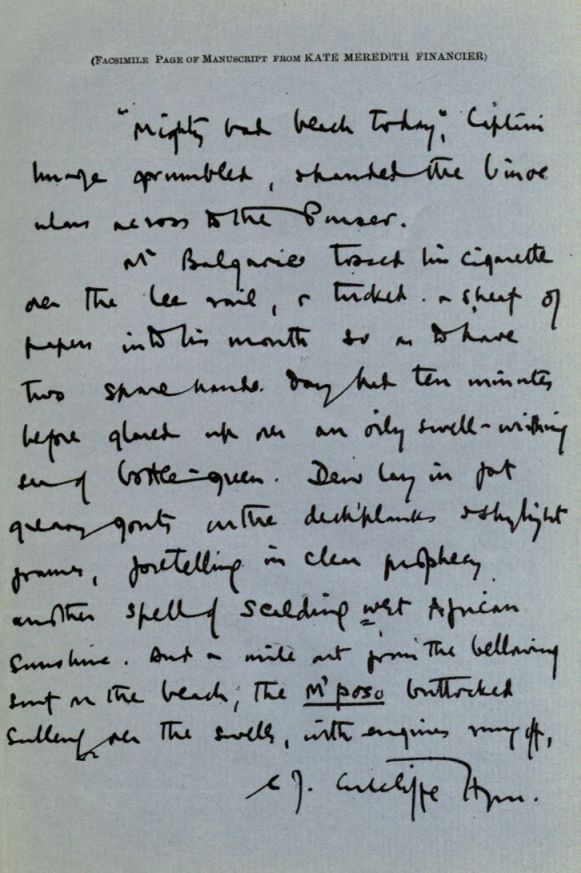 (FACSIMILE PAGE OF MANUSCRIPT FROM KATE MEREDITH FINANCIER)
"Mighty bad beach today," Captain
Image grumbled, & handed the binoc
ulars across to the Purser.
Mr Balgarnie tossed his cigarette
over the lee rail, & tucked a sheaf of
papers into his mouth so as to have
two spare hands. Day had ten minutes
before glared up over an oily swell-writhing
sea of bottle-green. Dew lay in fat
greasy gouts on the deckplanks & skylight
frames, foretelling in clear prophecy
another spell of scalding wet African
Sunshine. And a mile out from the bellowing
surf on the beach, the M'poso buttocked
sullenly over the swells, with engines rung off,
C J. Cutcliffe Hyne.